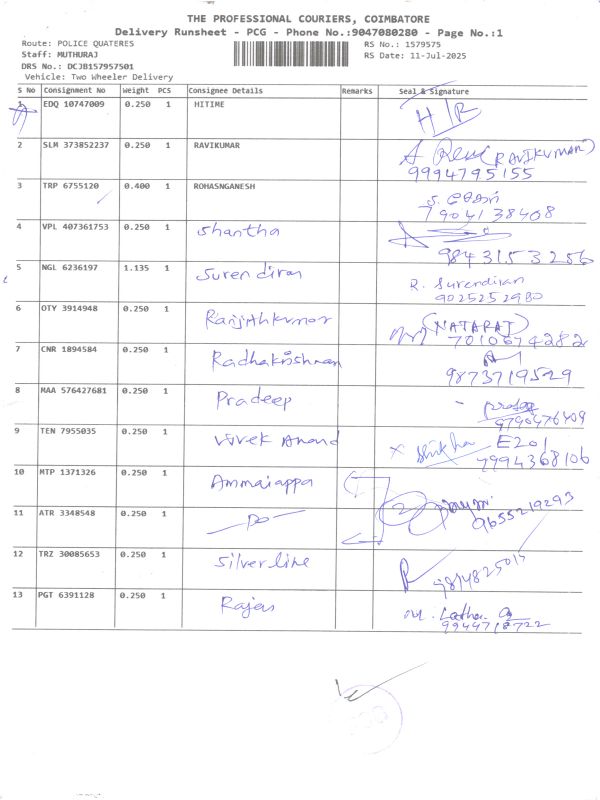 THE PROFESSIONAL COURIERS, COIMBATORE
Delivery Runsheet - PCG - Phone No.:9047080280 - Page No.:1
Route: POLICE QUATERES
Staff: MUTHURAJ
DRS No.: DCJB157957501
Vehicle: Two Wheeler Delivery
RS No.: 1579575
RS Date: 11-Jul-2025
S No Consignment No Weight PCS Consignee Details Remarks Seal & Signature
1 EDQ 10747009 0.250 1 HITIME
2 SLM 373852237 0.250 1 RAVIKUMAR A Ravi (RAVIKUMAR)
9994795155
3 TRP 6755120 0.400 1 ROHASNGANESH
7904138408
4 VPL 407361753 0.250 1 Shantha
9843153256
5 NGL 6236197 1.135 1 Surendiran R. Surendiran
9025252980
6 OTY 3914948 0.250 1 Ranjithkumar (NATARAJ)
7010674282
7 CNR 1894584 0.250 1 Radhakrishnan
9873719529
8 MAA 576427681 0.250 1 Pradeep
9790476409
9 TEN 7955035 0.250 1 Vivek Anand x Shikha E201
7994368106
10 MTP 1371326 0.250 1 Ammaiappa
9655219293
11 ATR 3348548 0.250 1 —DO—
12 TRZ 30085653 0.250 1 Silverline
9814825015
13 PGT 6391128 0.250 1 Rajes M. Latha
9949718722